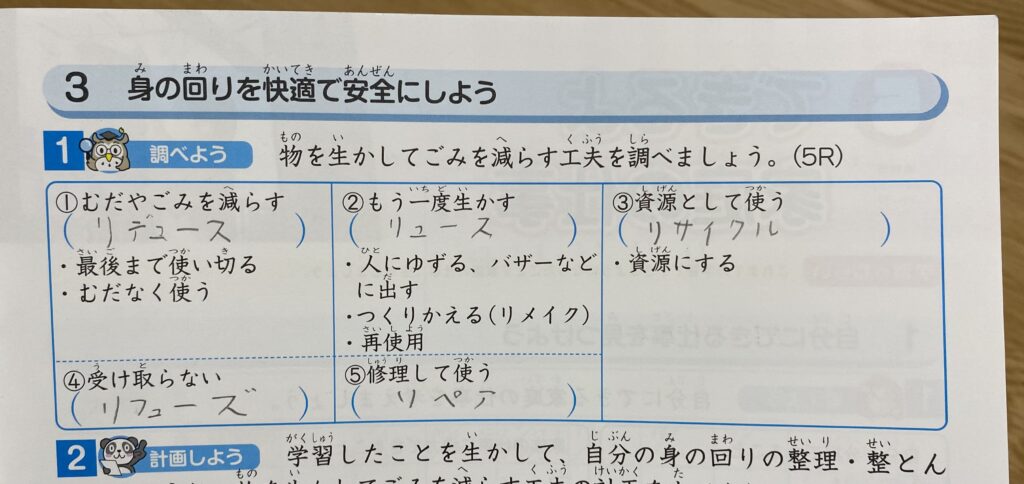 3 身の回りを快適で安全にしよう
1 調べよう 物を生かしてごみを減らす工夫を調べましょう。(5R)
①むだやごみを減らす
(リデュース)
・最後まで使い切る
・むだなく使う
②もう一度生かす
(リユース)
・人にゆずる、バザーなど
に出す
・つくりかえる(リメイク)
・再使用
③資源として使う
(リサイクル)
・資源にする
④受け取らない
(リフューズ)
⑤修理して使う
(リペア)
2 計画しよう 学習したことを生かして、自分の身の回りの整理・整とん